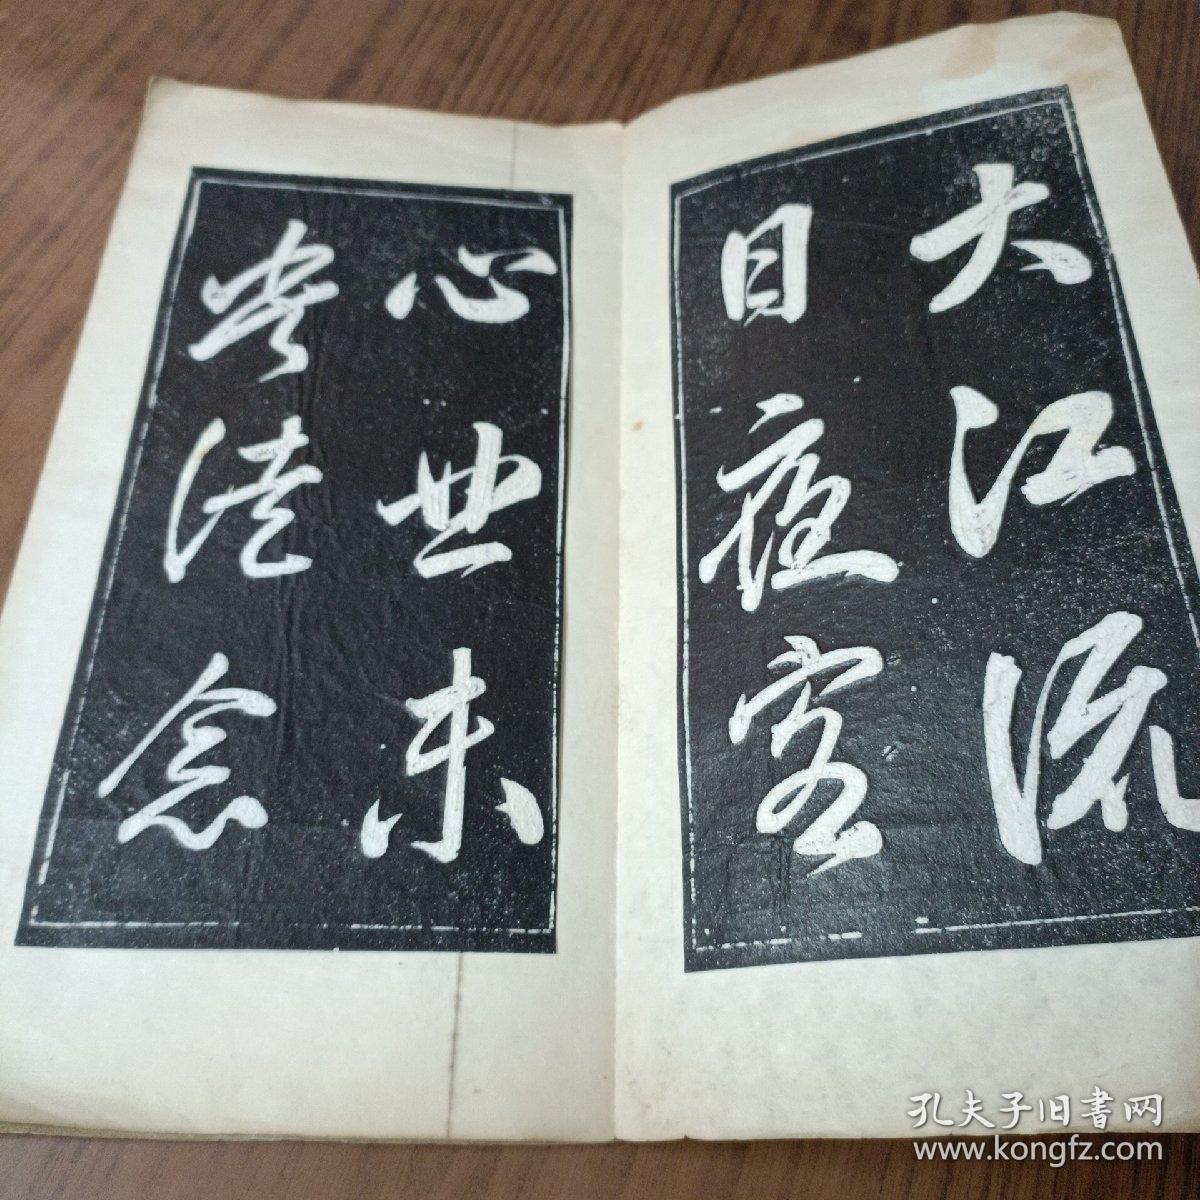 大江流
日夜客
心悲未
央徒念
孔夫子旧書网
www.kongfz.com